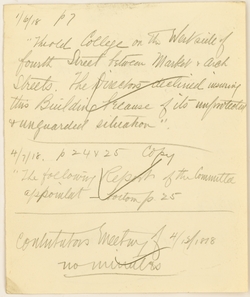 1/4/18. p7
"The old College on the West side of
fourth Street between Market & Arch
Streets. The Directors declined insuring
this Building because of its unprotected
& unguarded situation".
4/7/18. p 24 & 25 Copy
"The following Report of the Committee
p. 25
Contributors Meeting of 4/13/1818
no minutes